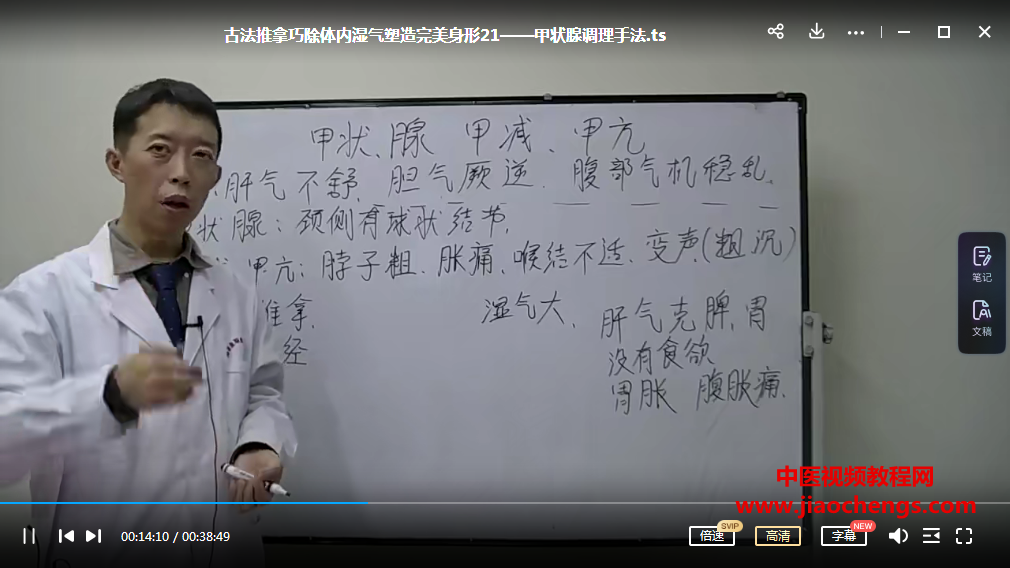 古法推拿巧除体内湿气塑造完美身形21——甲状腺调理手法.ts
甲状腺 甲减、甲亢
肝气不舒、胆气厥逆、腹部气机稳乱、
状腺：颈侧有球状结节，
甲亢：脖子粗、胀痛、喉结不适、变声(粗沉)
推拿、
湿气大、
肝气克脾胃
经
没有食欲
胃胀 腹胀痛、
笔记
文稿
中医视频教程网
www.jiaochengs.com
00:14:10 / 00:38:49
倍速
SVIP
高清
字幕
NEW